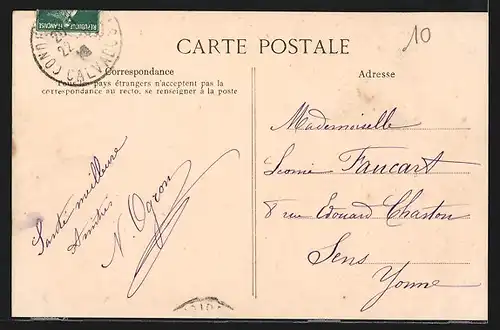 RÉPUBLIQUE FRANÇAISE
CALVADOS
CARTE POSTALE
10
Correspondance
Tous les pays étrangers n'acceptent pas la
correspondance au recto, se renseigner à la poste
Adresse
Santé meilleure
Amitiés
N. Ogron
Mademoiselle
Léonie Faucart
8 rue Edouard Charton
Sens
Yonne